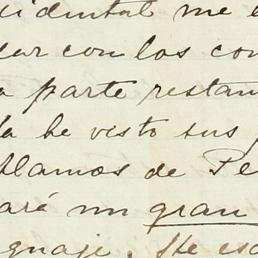 cidental me e
dar con los con
a parte restan
da he visto sus
blamos de Fe
ará un gran
guaje. He es